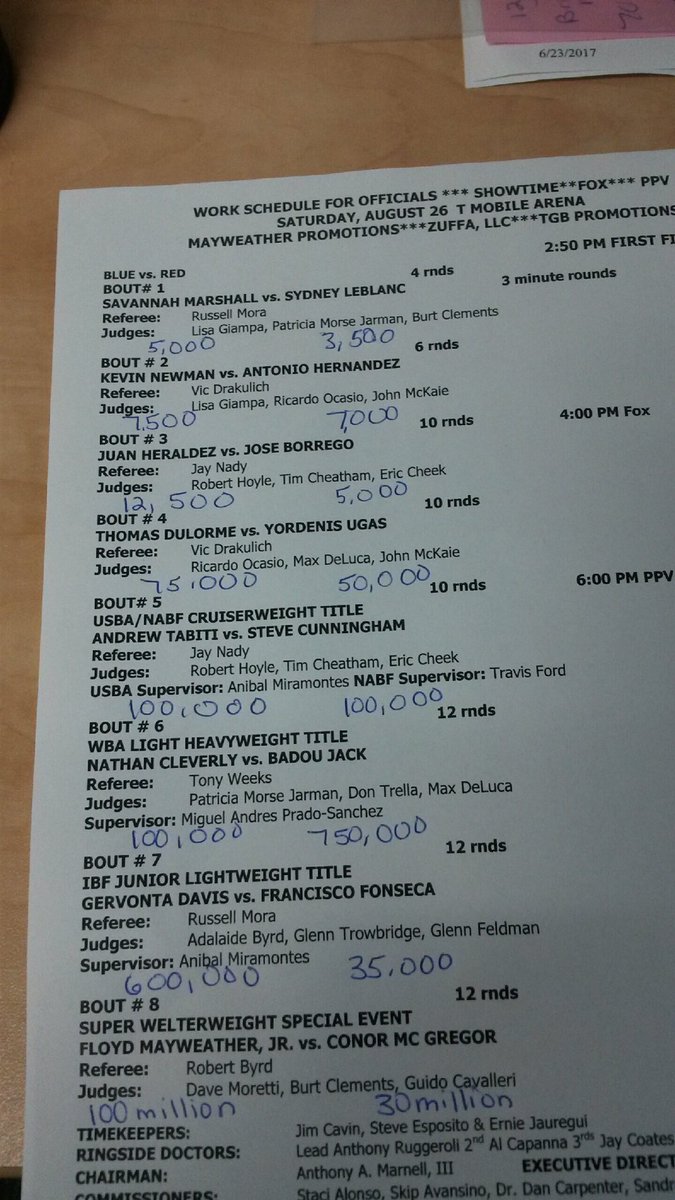 6/23/2017
WORK SCHEDULE FOR OFFICIALS *** SHOWTIME**FOX*** PPV
SATURDAY, AUGUST 26 T MOBILE ARENA
MAYWEATHER PROMOTIONS***ZUFFA, LLC***TGB PROMOTIONS
2:50 PM FIRST FI
BLUE vs. RED
BOUT# 1 4 rnds
SAVANNAH MARSHALL vs. SYDNEY LEBLANC 3 minute rounds
Referee: Russell Mora
Judges: Lisa Giampa, Patricia Morse Jarman, Burt Clements
5,000 3,500
BOUT # 2 6 rnds
KEVIN NEWMAN vs. ANTONIO HERNANDEZ
Referee: Vic Drakulich
Judges: Lisa Giampa, Ricardo Ocasio, John McKaie
7,500 7,000
BOUT # 3 10 rnds 4:00 PM Fox
JUAN HERALDEZ vs. JOSE BORREGO
Referee: Jay Nady
Judges: Robert Hoyle, Tim Cheatham, Eric Cheek
12,500 5,000
BOUT # 4 10 rnds
THOMAS DULORME vs. YORDENIS UGAS
Referee: Vic Drakulich
Judges: Ricardo Ocasio, Max DeLuca, John McKaie
75,000 50,000
BOUT# 5 10 rnds 6:00 PM PPV
USBA/NABF CRUISERWEIGHT TITLE
ANDREW TABITI vs. STEVE CUNNINGHAM
Referee: Jay Nady
Judges: Robert Hoyle, Tim Cheatham, Eric Cheek
USBA Supervisor: Anibal Miramontes NABF Supervisor: Travis Ford
100,000 100,000
BOUT # 6 12 rnds
WBA LIGHT HEAVYWEIGHT TITLE
NATHAN CLEVERLY vs. BADOU JACK
Referee: Tony Weeks
Judges: Patricia Morse Jarman, Don Trella, Max DeLuca
Supervisor: Miguel Andres Prado-Sanchez
100,000 750,000
BOUT # 7 12 rnds
IBF JUNIOR LIGHTWEIGHT TITLE
GERVONTA DAVIS vs. FRANCISCO FONSECA
Referee: Russell Mora
Judges: Adalaide Byrd, Glenn Trowbridge, Glenn Feldman
Supervisor: Anibal Miramontes
600,000 35,000
BOUT # 8 12 rnds
SUPER WELTERWEIGHT SPECIAL EVENT
FLOYD MAYWEATHER, JR. vs. CONOR MC GREGOR
Referee: Robert Byrd
Judges: Dave Moretti, Burt Clements, Guido Cavalleri
100 million 30 million
TIMEKEEPERS: Jim Cavin, Steve Esposito & Ernie Jauregui
RINGSIDE DOCTORS: Lead Anthony Ruggeroli 2nd Al Capanna 3rds Jay Coates
CHAIRMAN: Anthony A. Marnell, III EXECUTIVE DIRECT
COMMISSIONERS: Staci Alonso, Skip Avansino, Dr. Dan Carpenter, Sandr